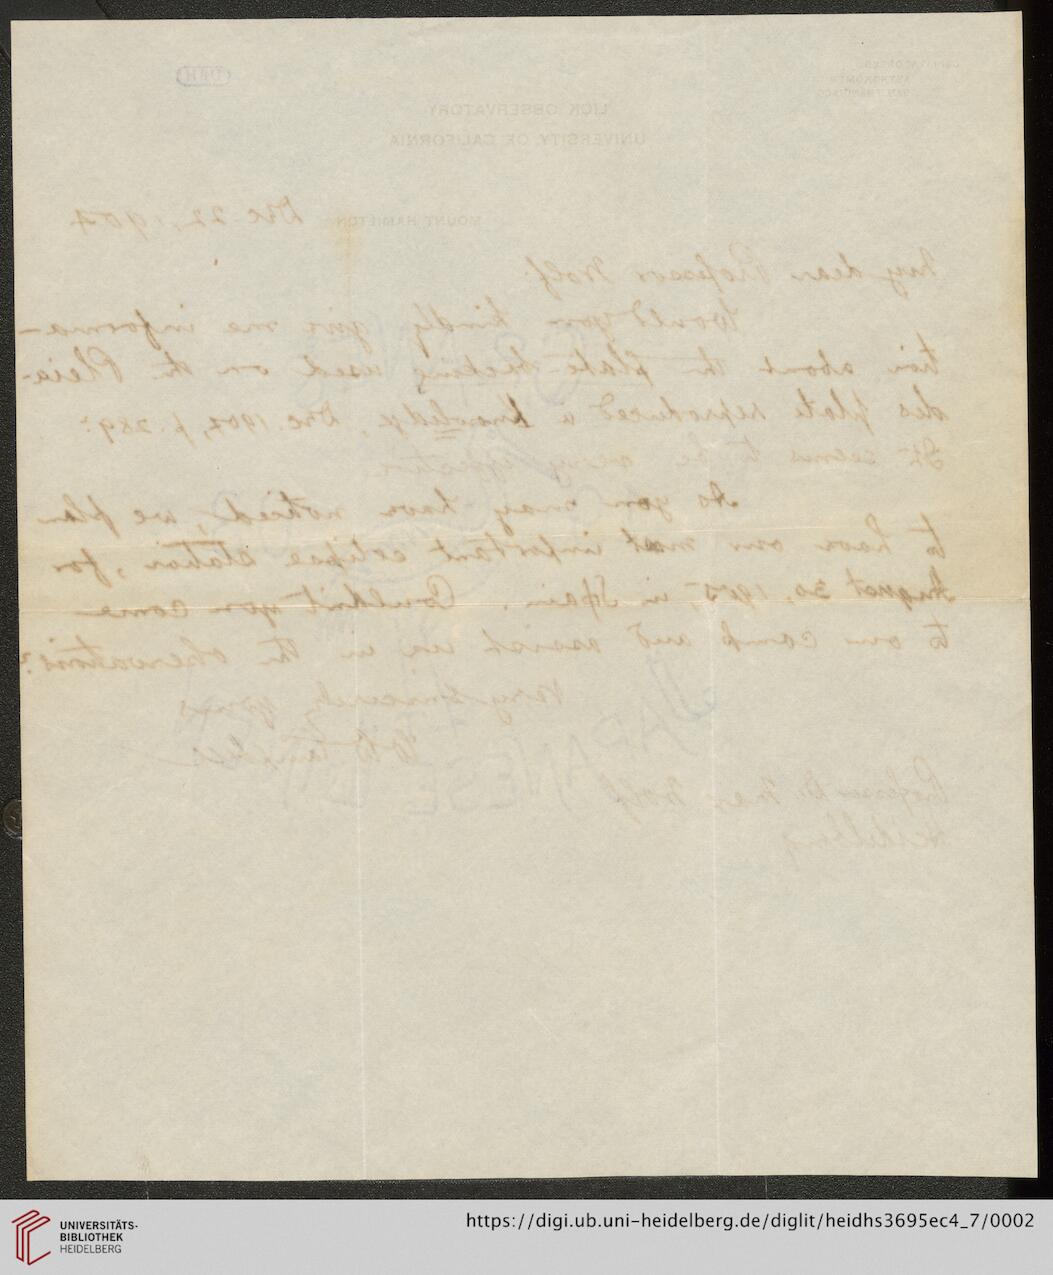 UBH
CABLE ADDRESS
ASTRONOMER
SAN FRANCISCO
LICK OBSERVATORY
UNIVERSITY OF CALIFORNIA
MOUNT HAMILTON Dec 22, 1904
My dear Professor Wolf
Would you kindly give me informa-
tion about the plate-backing used on the Pleia-
des plate reproduced in Knowledge, Dec. 1904, p. 289?
It seems to be very effective.
As you may have noticed, we plan
to have our most important eclipse station, for
August 30, 1905, in Spain. Couldn't you come
to our camp and assist us in the observations?
Very sincerely yours
W W Campbell
Professor Dr. Max Wolf
Heidelberg
JAPANESE LINEN
UNIVERSITÄTS-
BIBLIOTHEK
HEIDELBERG
https://digi.ub.uni-heidelberg.de/diglit/heidhs3695ec4_7/0002